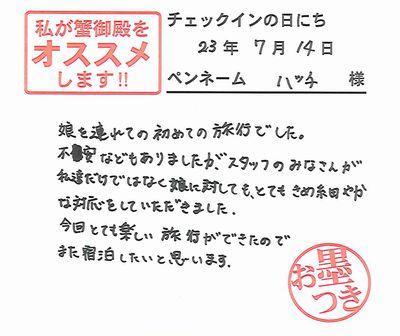 私が蟹御殿を
オススメ
します!!
チェックインの日にち
23年 7月 14日
ペンネーム ハッチ 様
娘を連れての初めての旅行でした。
不安などもありましたが、スタッフのみなさんが
私達だけではなく娘に対しても、とてもきめ細やか
な対応をしていただきました。
今回とても楽しい旅行ができたので
また宿泊したいと思います。
お墨つき